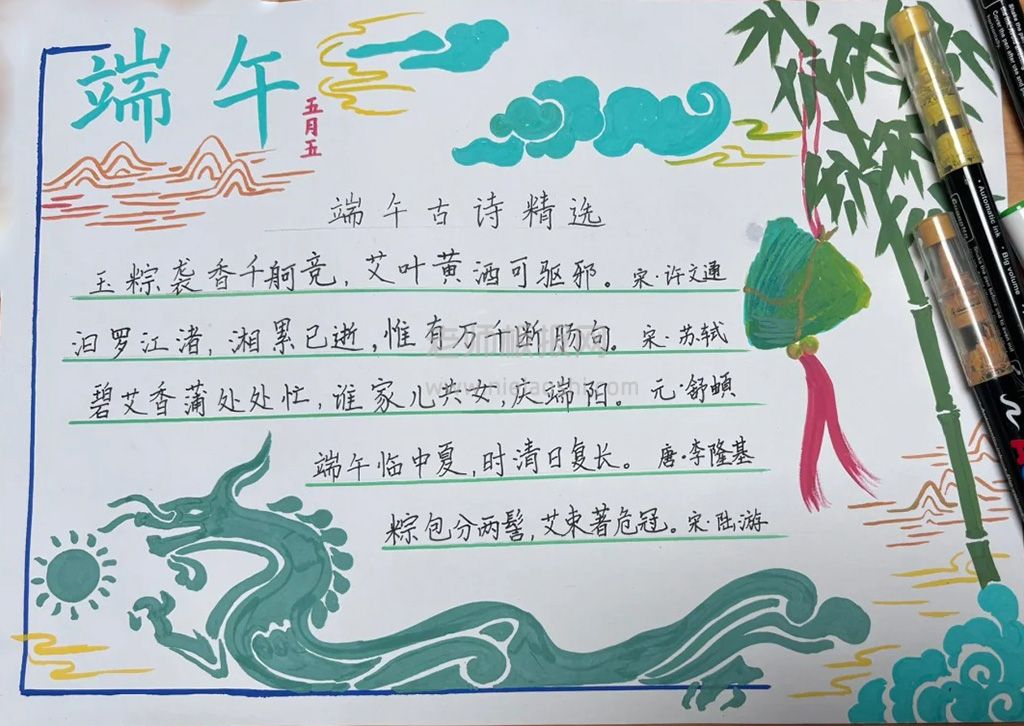 端午
五月五
端午古诗精选
玉粽袭香千舸竞，艾叶黄酒可驱邪。宋·许文通
汨罗江渚，湘累已逝，惟有万千断肠句。宋·苏轼
碧艾香蒲处处忙，谁家儿共女，庆端阳。元·舒頔
端午临中夏，时清日复长。唐·李隆基
粽包分两髻，艾束著危冠。宋·陆游
Automatic ink
Big volume